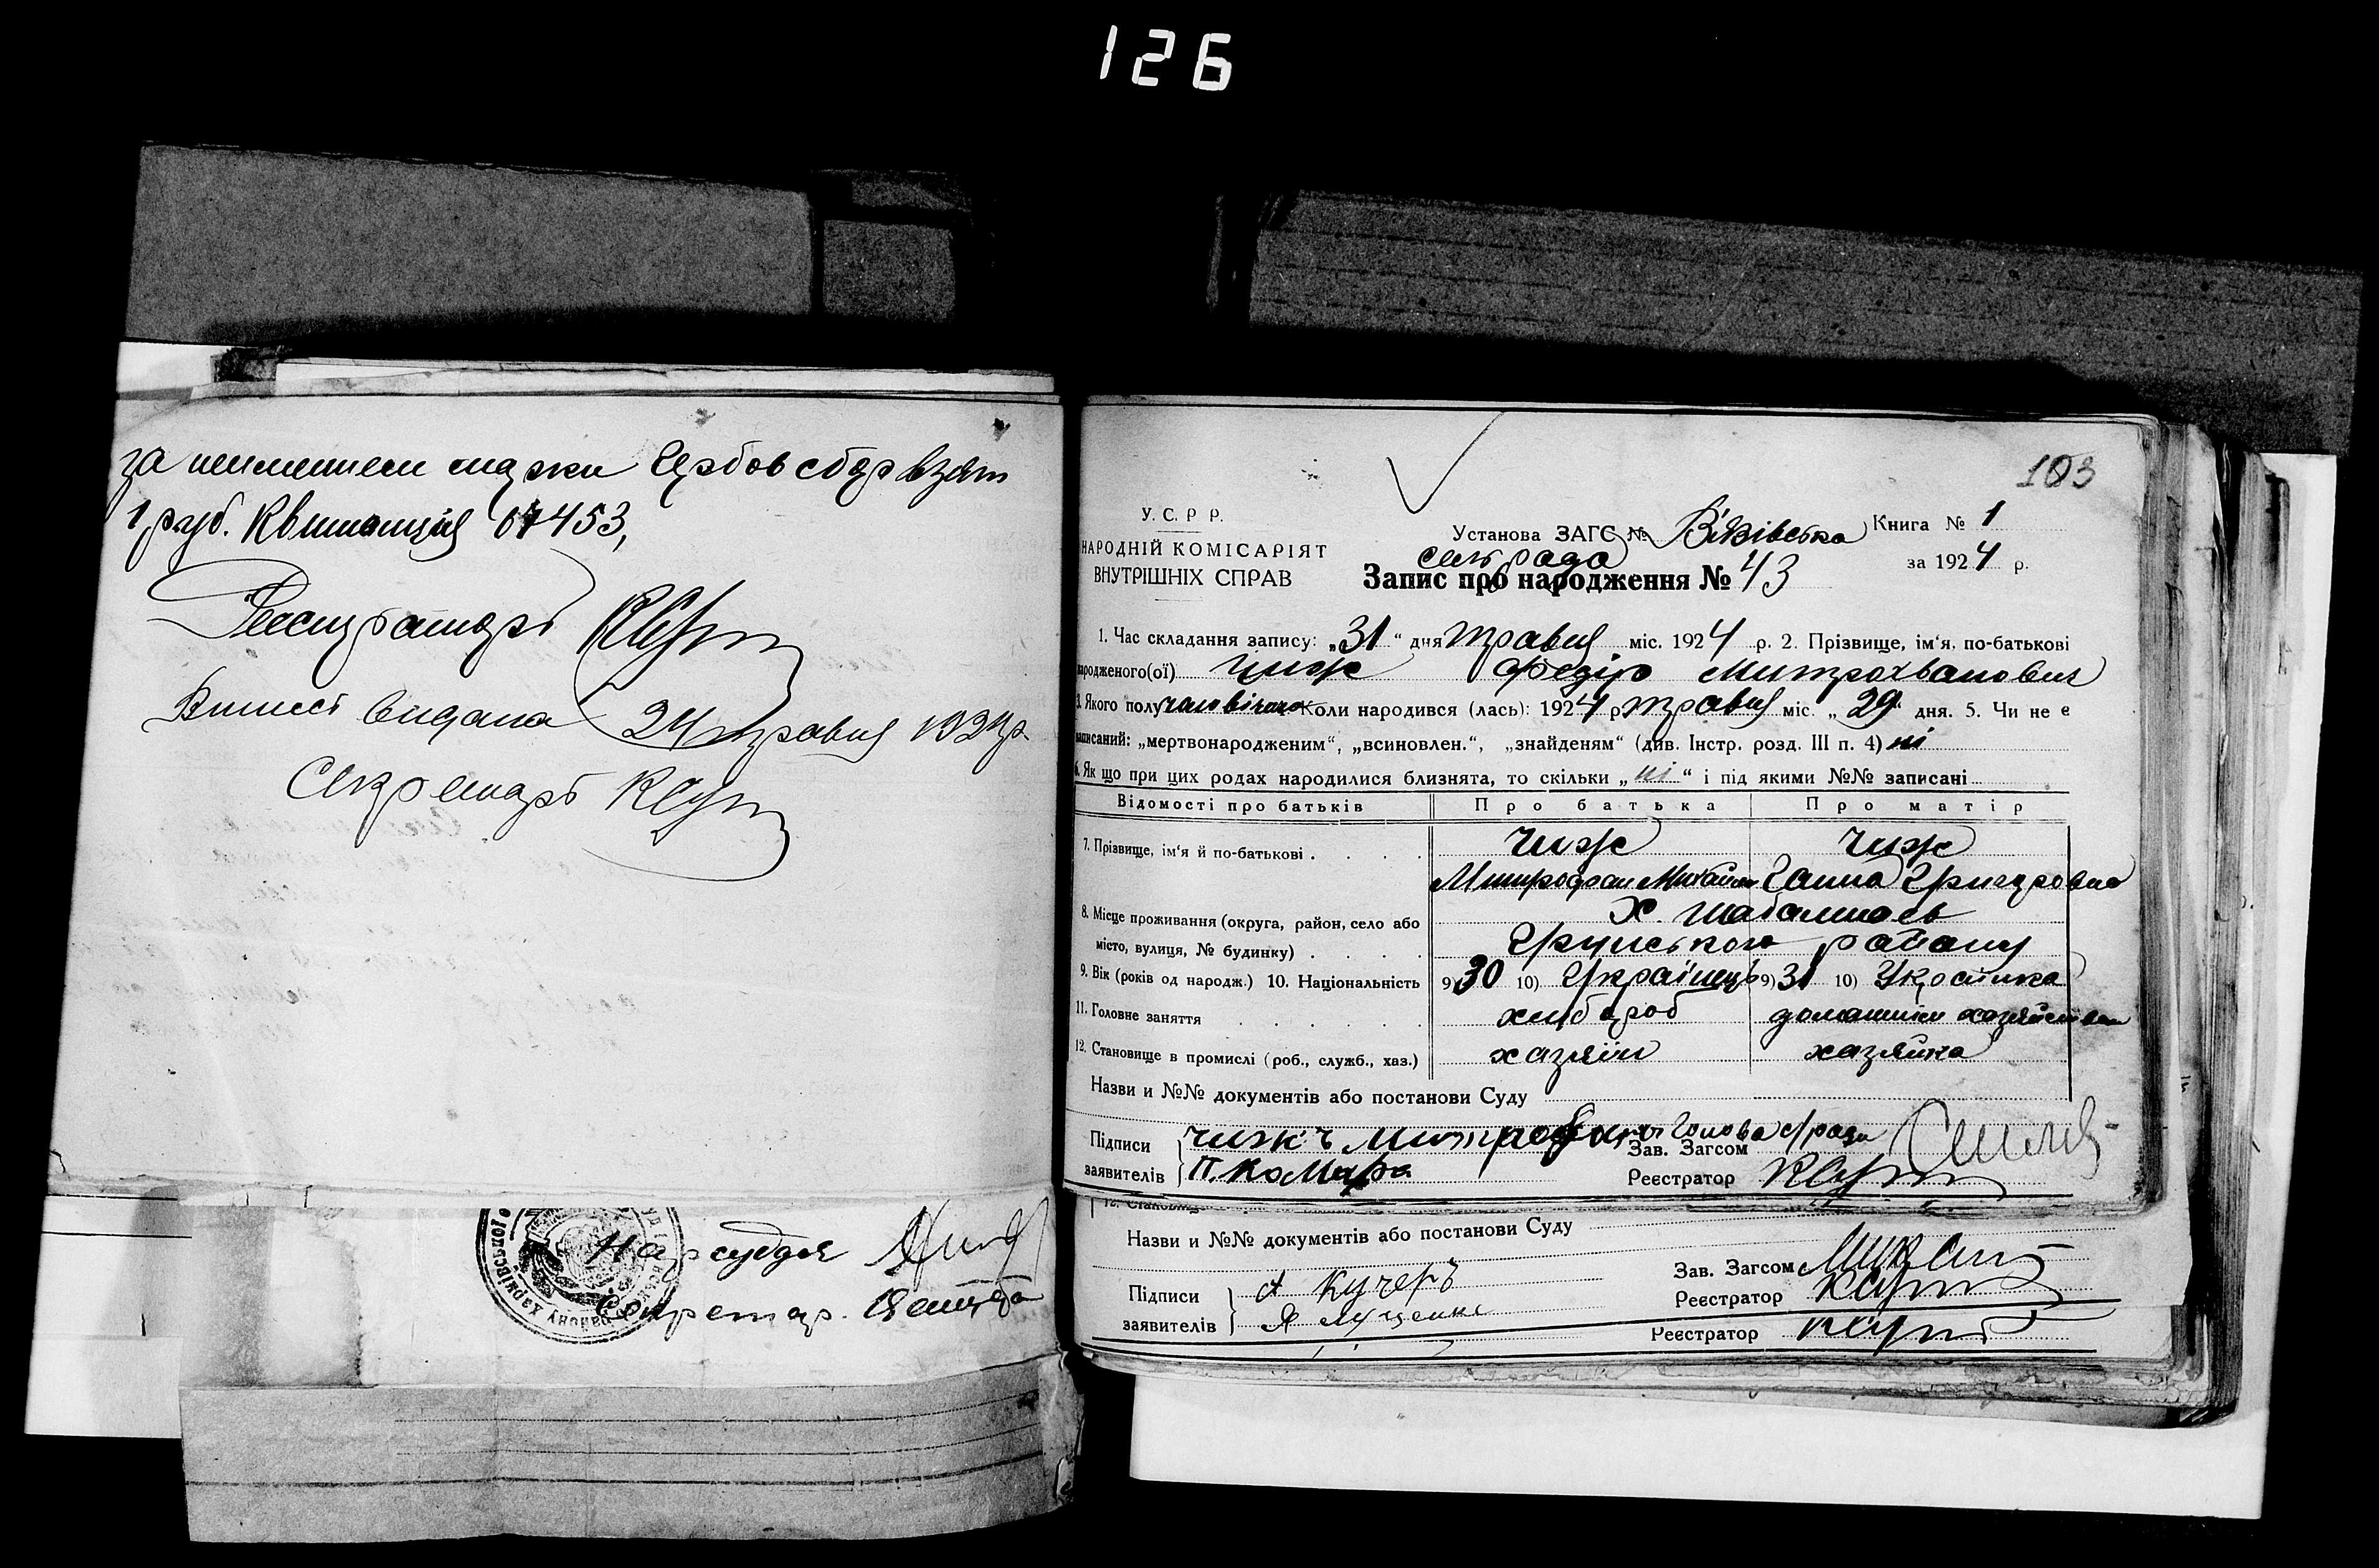 126
за неимением марки Гербов сбор взят
1 руб. Квитанция 07453,
Реєстраторъ
Випись видана 24 травня 1924 р.
Секретарь
Нарсуддя
Секретар.
103
У. С. Р. Р.
НАРОДНІЙ КОМІСАРІЯТ
ВНУТРІШНІХ СПРАВ
Установа ЗАГС № Книга № 1
сельрада
за 1924 р.
Запис про народження № 43
1. Час складання запису: „31“ дня травня міс. 1924 р. 2. Прізвище, ім'я, по-батькові
народженого(ої) Чиж Федір Митрохванович
3. Якого полу чоловічого Коли народився (лась): 1924 р травня міс. „29“ дня. 5. Чи не є
записаний: „мертвонародженим“, „всиновлен.“, „знайденям“ (див. Інстр. розд. III п. 4) ні
6. Як що при цих родах народилися близнята, то скільки „ні“ і під якими №№ записані
Відомості про батьків Про батька Про матір
7. Прізвище, ім'я й по-батькові . . . . Чиж Чиж
Митрофан Ганна Григоровна
8. Місце проживання (округа, район, село або Х.
місто, вулиця, № будинку) . . . . Грунського району
9. Вік (років од народж.) 10. Національність 9) 30 10) Українець 9) 31 10) Українка
11. Головне заняття . . . . . . хлібороб домашнім хазяйством
12. Становище в промислі (роб., служб., хаз.) хазяїн хазяйка
Назви и №№ документів або постанови Суду
Підписи Чижъ Митрофанъ Голова с/ради
Зав. Загсом
заявителів П. Комара Реєстратор
12. Становище
Назви и №№ документів або постанови Суду
Зав. Загсом
Підписи А Кучеръ
Реєстратор
заявителів Я Луценко
Реєстратор